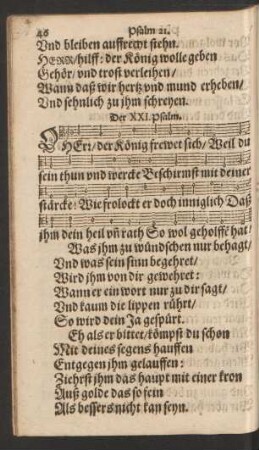 46 Psalm 21.
Vnd bleiben auffrewt stehn.
HERR/hilff: der König wolle geben
Gehör/ vnd trost verleihen/
Wann daß wir hertz vnd mund erheben/
Vnd sehnlich zu jhm schreyen.
Der XXI. Psalm.
O HErr/ der König frewet sich/ Weil du
sein thun vnd wercke Beschirmst mit deiner
stärcke: Wie frolockt er doch inniglich Daß
jhm dein heil vñ rath So wol geholffē hat/
Was jhm zu wündschen nur behagt/
Vnd was sein sinn begehret/
Wird jhm von dir gewehret:
Wann er ein wort nur zu dir sagt/
Vnd kaum die lippen rührt/
So wird dein Ja gespürt.
Eh als er bittet/ kömpst du schon
Mit deines segens hauffen
Entgegen jhm gelauffen:
Ziehrst jhm das haupt mit einer kron
Auß golde das so fein
Als bessers nicht kan seyn.